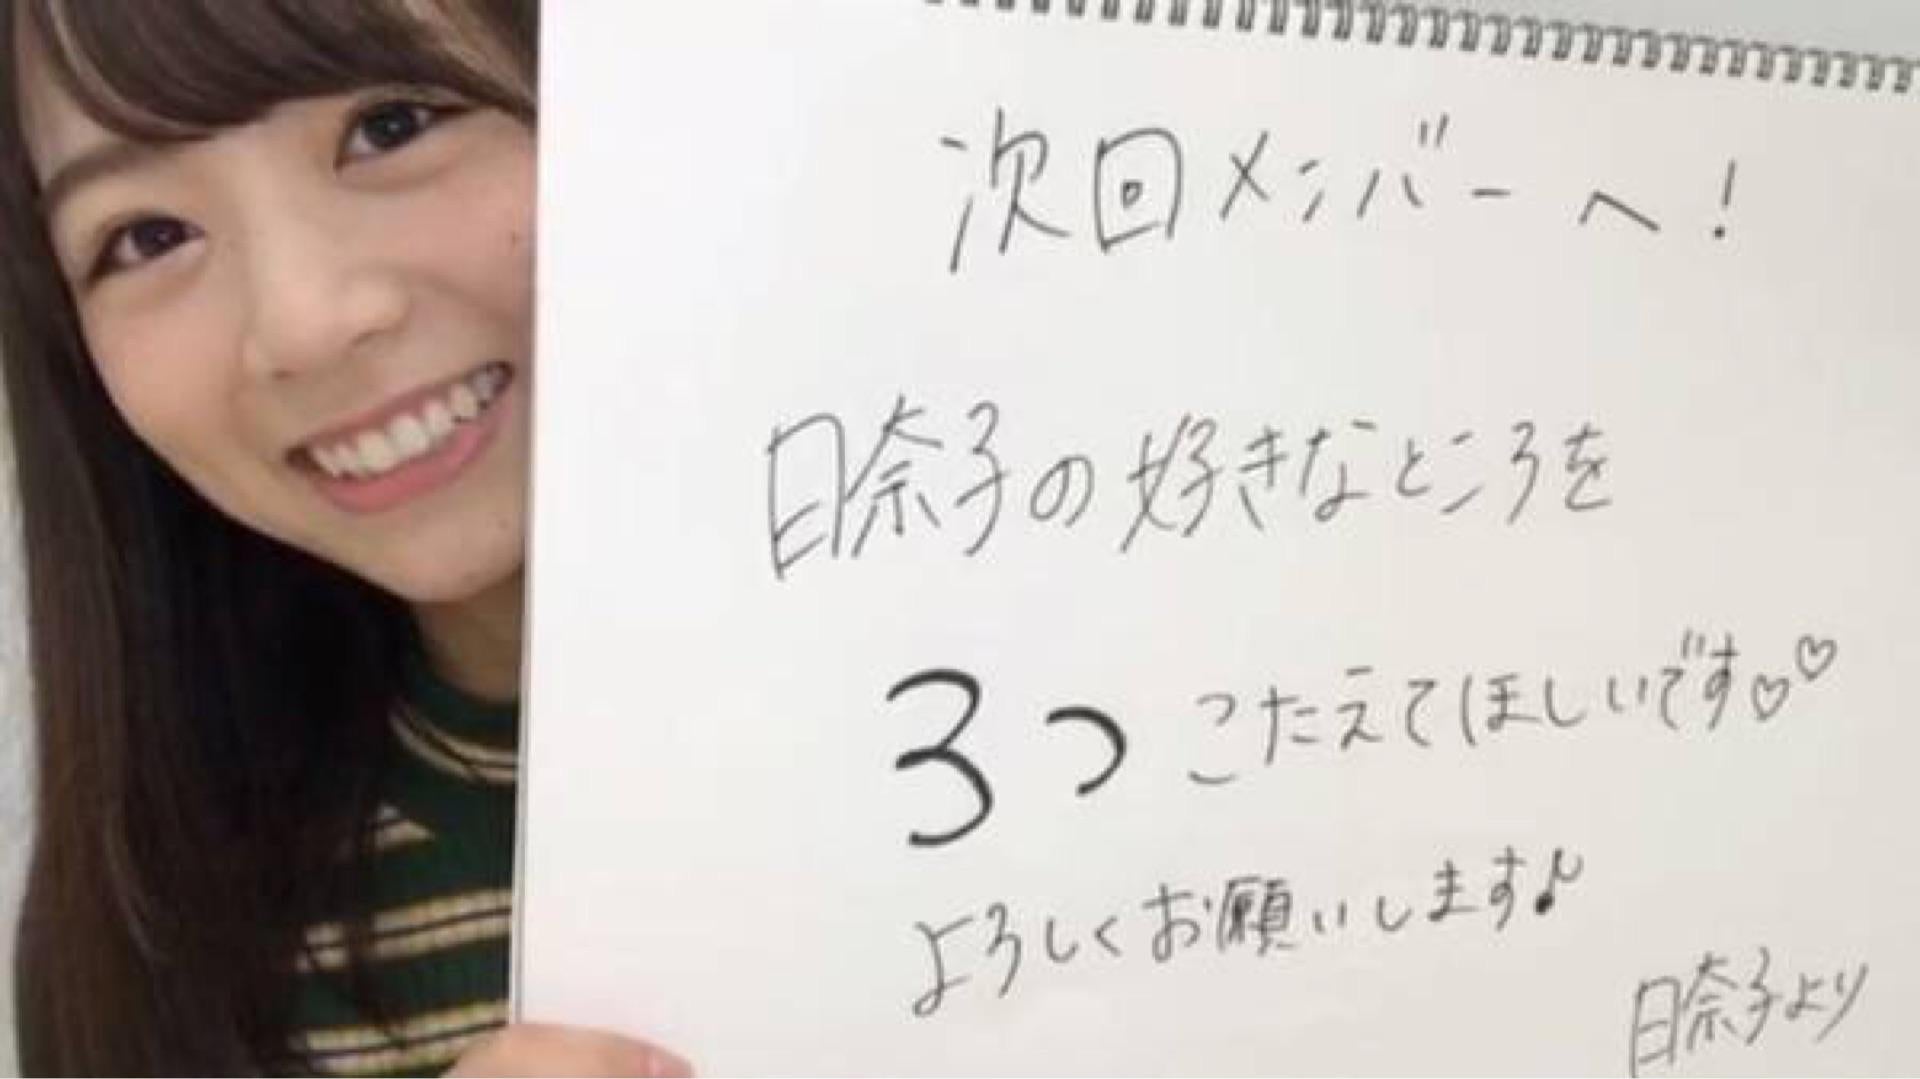 次回メンバーへ!
日奈子の好きなところを
3つこたえてほしいです♡♡
よろしくお願いします♪
日奈子より